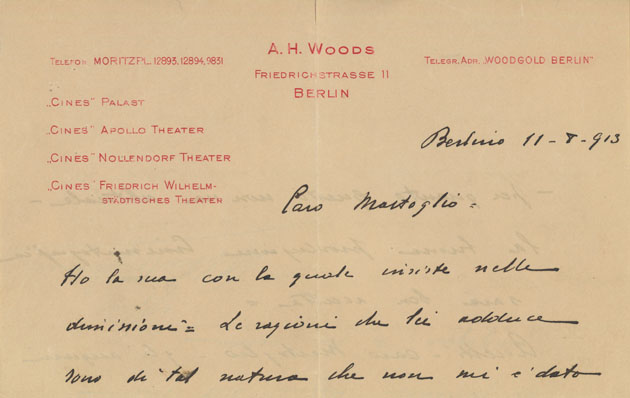 A. H. WOODS
FRIEDRICHSTRASSE 11
BERLIN
TELEFON MORITZPL. 12893, 12894, 9831
TELEGR. ADR. „WOODGOLD BERLIN“
„CINES“ PALAST
„CINES“ APOLLO THEATER
„CINES“ NOLLENDORF THEATER
„CINES“ FRIEDRICH WILHELM-
STÄDTISCHES THEATEN
Berlino 11-8-913
Caro Martoglio =
Ho la sua con la quale insiste nelle
dimissioni = Le ragioni che lei adduce
sono di tal natura che non mi è dato